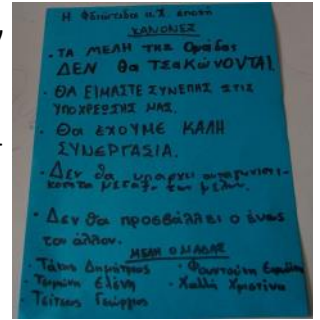 Η Φθιώτιδα π.Χ. εποχή
ΚΑΝΟΝΕΣ
· ΤΑ ΜΕΛΗ ΤΗΣ Ομάδας
ΔΕΝ θα ΤΣΑΚώΝΟΝΤΑΙ.
· ΘΑ ΕΙΜΑΣΤΕ ΣΥΝΕΠΗΣ ΣΤΙΣ
ΥΠΟΧΡΕΩΣΗΣ ΜΑΣ.
· Θα ΕΧΟΥΜΕ ΚΑΛΗ
ΣΥΝΕΡΓΑΣΙΑ.
· Δεν θα υπάρχει
μεταξύ των μελών.
· Δεν θα προσβάλλει ο ένας
τον άλλον.
ΜΕΛΗ ΟΜΑΔΑΣ
· Τάκας Δημήτριος
· Ελένη
· Τσίτσας Γεώργιος
· Φουντούκη
· Χαλλή Χριστίνα